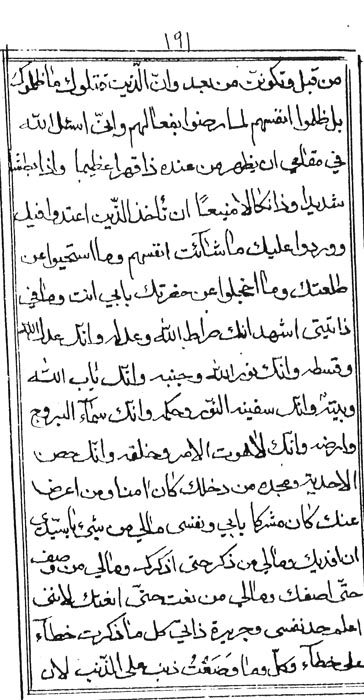 ١٩١
من قبل وتكونت من بعد وان الذين قتلوك ما ظلموك
بل ظلموا انفسهم لما رضوا بفعالهم وانى اسئل الله
في مقامي ان يظهر من عنده ذا قهرا عظيما وذا بطشا
شديدا وذا نكالا منيعا ان تأخذ الذين اعتدوا فيك
ووردوا عليك ما شائت انفسهم وما استحيوا عن
طلعتك وما اخجلوا عن حضرتك بابي انت وما في
ذاتيتي اشهد انك صراط الله وعدله وانك عدل الله
وقسطه وانك نور الله وجنبه وانك باب الله
وبيته وانك سفينه النور وحكمه وانك سماء البروج
وارضه وانك لاهوت الامر وخلقه وانك حصن
الاحدية ومجده من دخلك كان امنا ومن اعرض
عنك كان مشركا بابي ونفسى مالي من شئ يا سيدي
ان افديك ومالي من ذكر حتى اذكرك ومالي من وصف
حتى اصفك ومالي من نعت حتى انعتك لانني
اعلم حد نفسي وجريرة ذاتي كل ما ذكرت خطآء
على خطآء وكل وما وصَعَتُ ذنب على الذنب لان